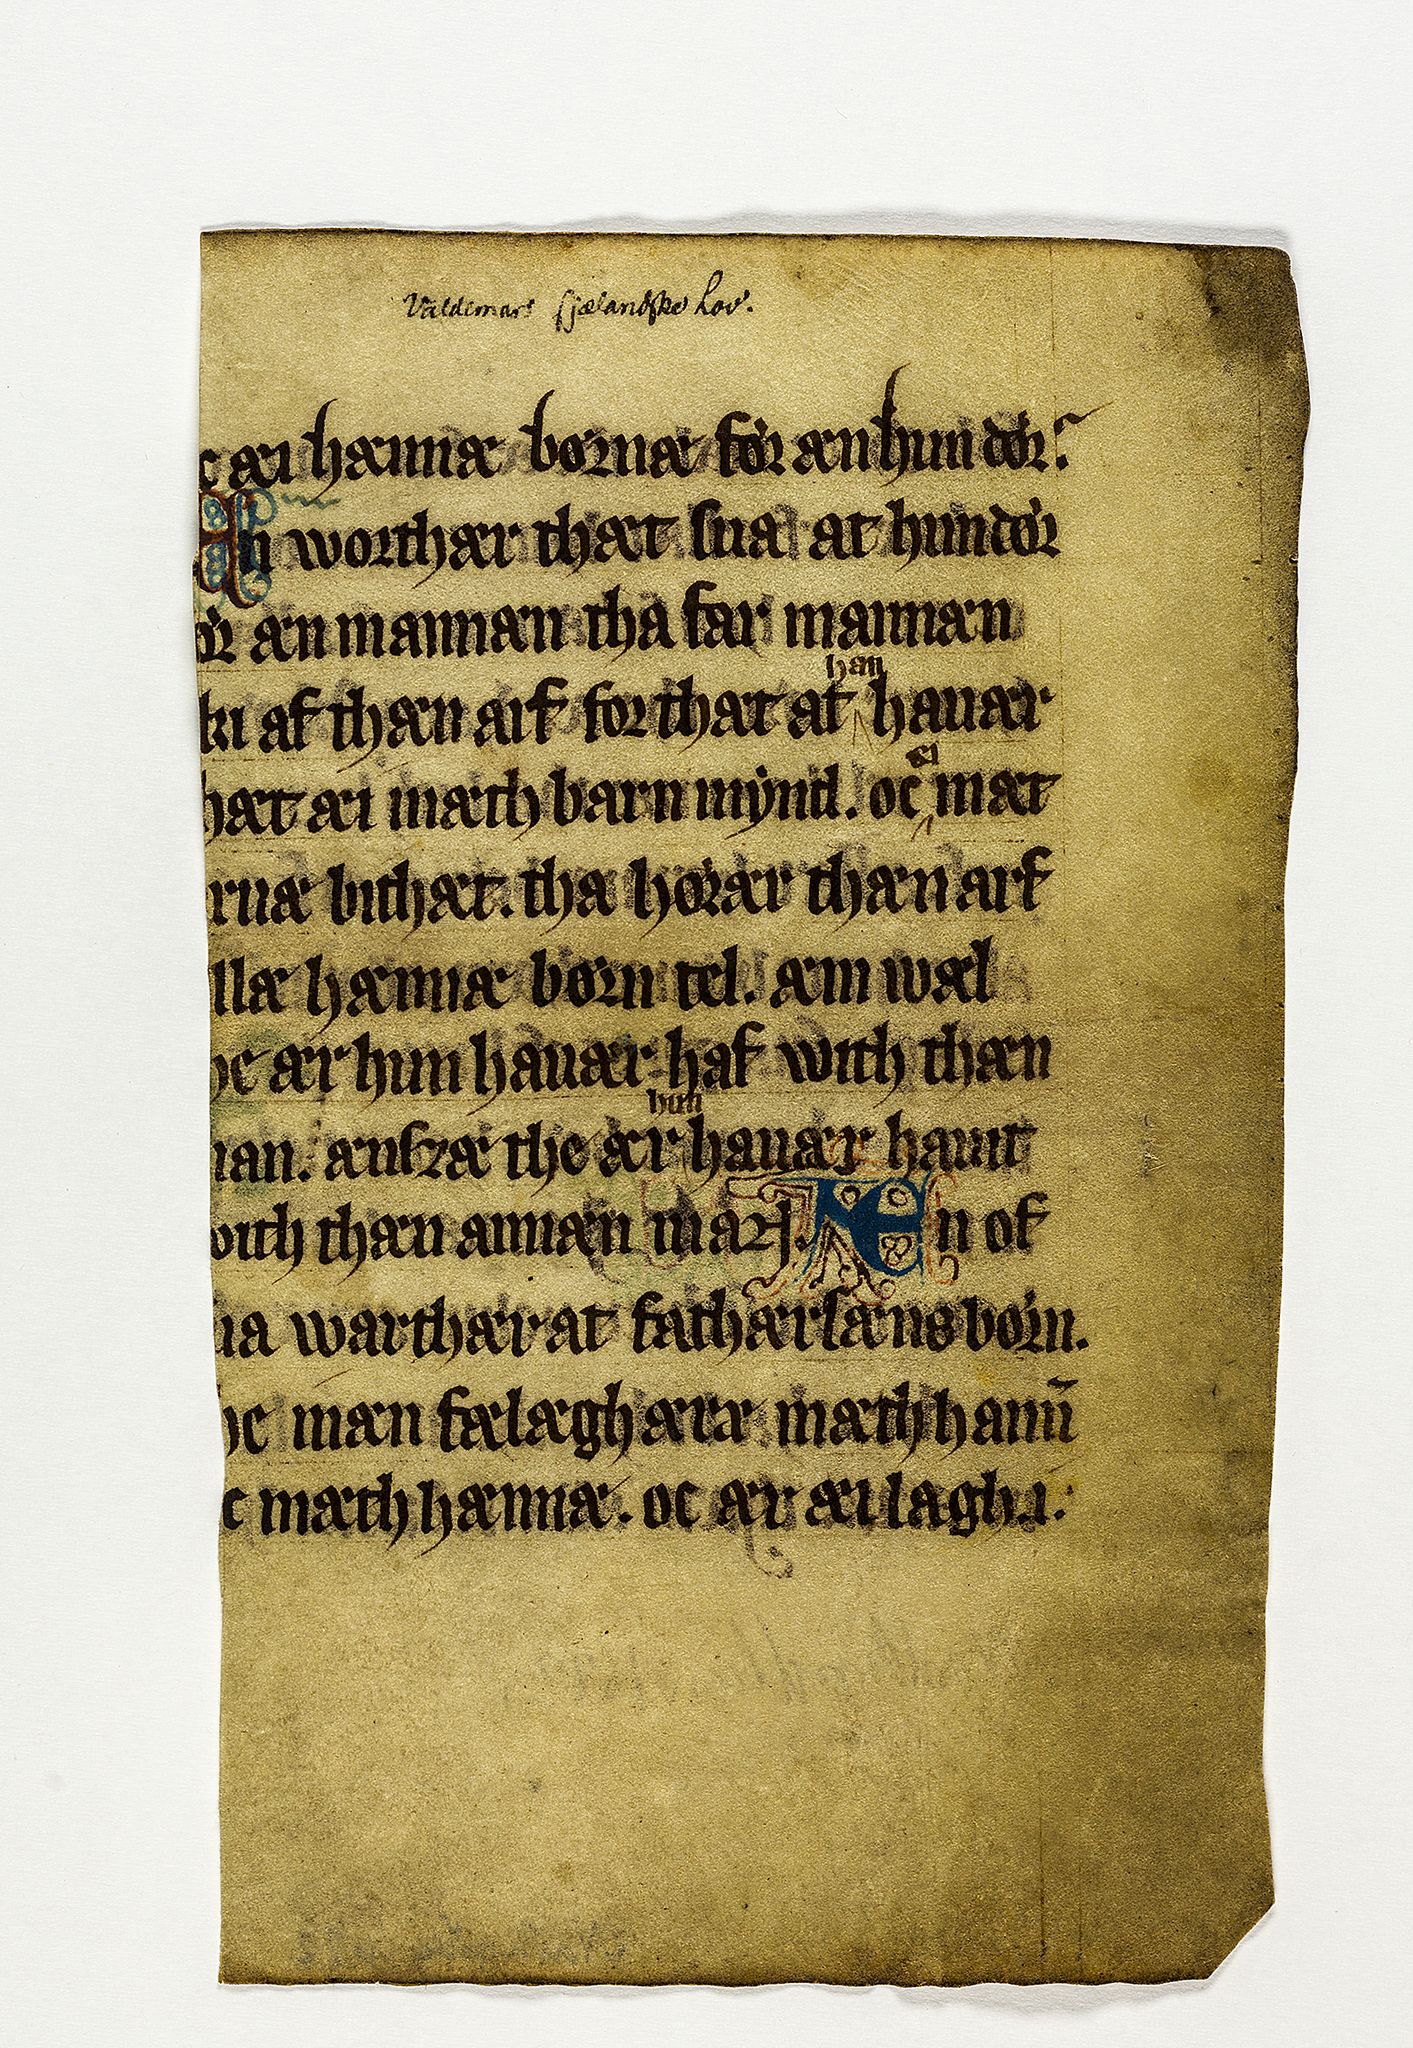 Valdemars sjælandske Lov.
c æi hænnæ børnæ før æn hun dør.
Æn worthær thæt sua at hun dør
ør æn mannæn tha far mannæn
ki af thæn arf for that at han hauær
hæt æi mæth barn mynd. oc æi mæt
rnæ lithæt. tha hørær thæn arf
llæ hænnæ børn tel. æm wæl
he ær hun hauær haf with thæn
man. ænszæ the ær hun hauær hauit
with thæn annæn man. Æn of
ua warthær at fathærsæns børn.
he mæn fælæghæræ mæth hanū
c mæth hænnæ. oc ær æi lagh.i.